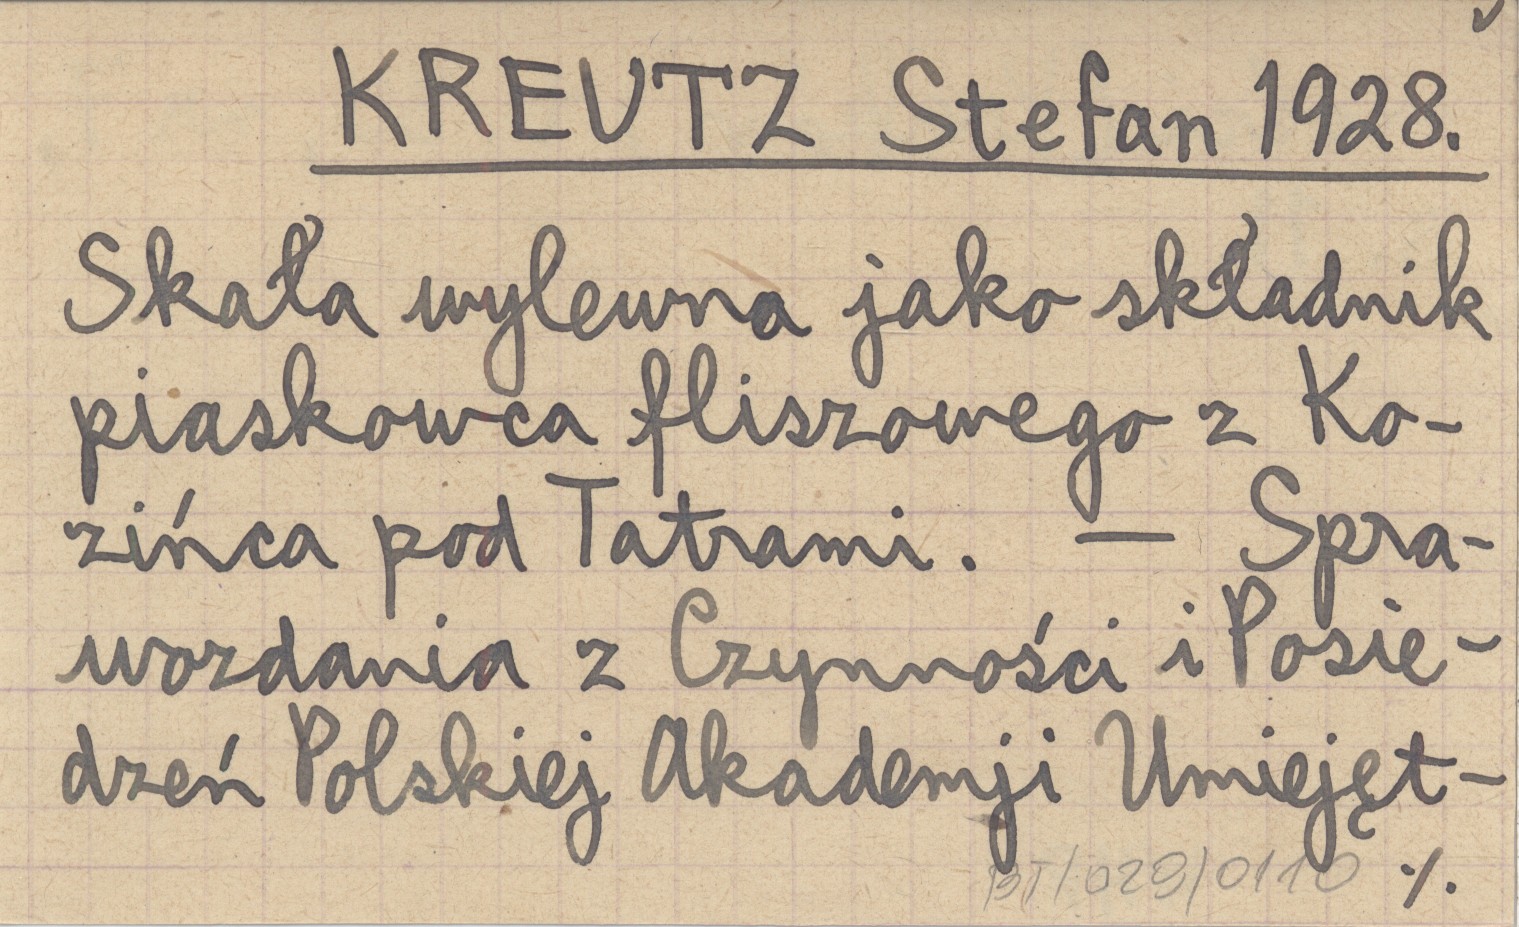 KREUTZ Stefan 1928.
Skała wylewna jako składnik
piaskowca fliszowego z Ko-
zińca pod Tatrami. — Spra-
wozdania z Czynności i Posie-
dzeń Polskiej Akademji Umiejęt-
BT/029/0110 ·/.